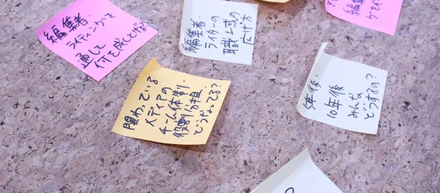 編集者
ライティングを
通して
人を成長させる
編集者
ライターの
職域の
広げ方
編集
関わっている
メディアの
チーム体制・
役割分担
どうやってる?
5年後・
10年後
みんな
どうする?